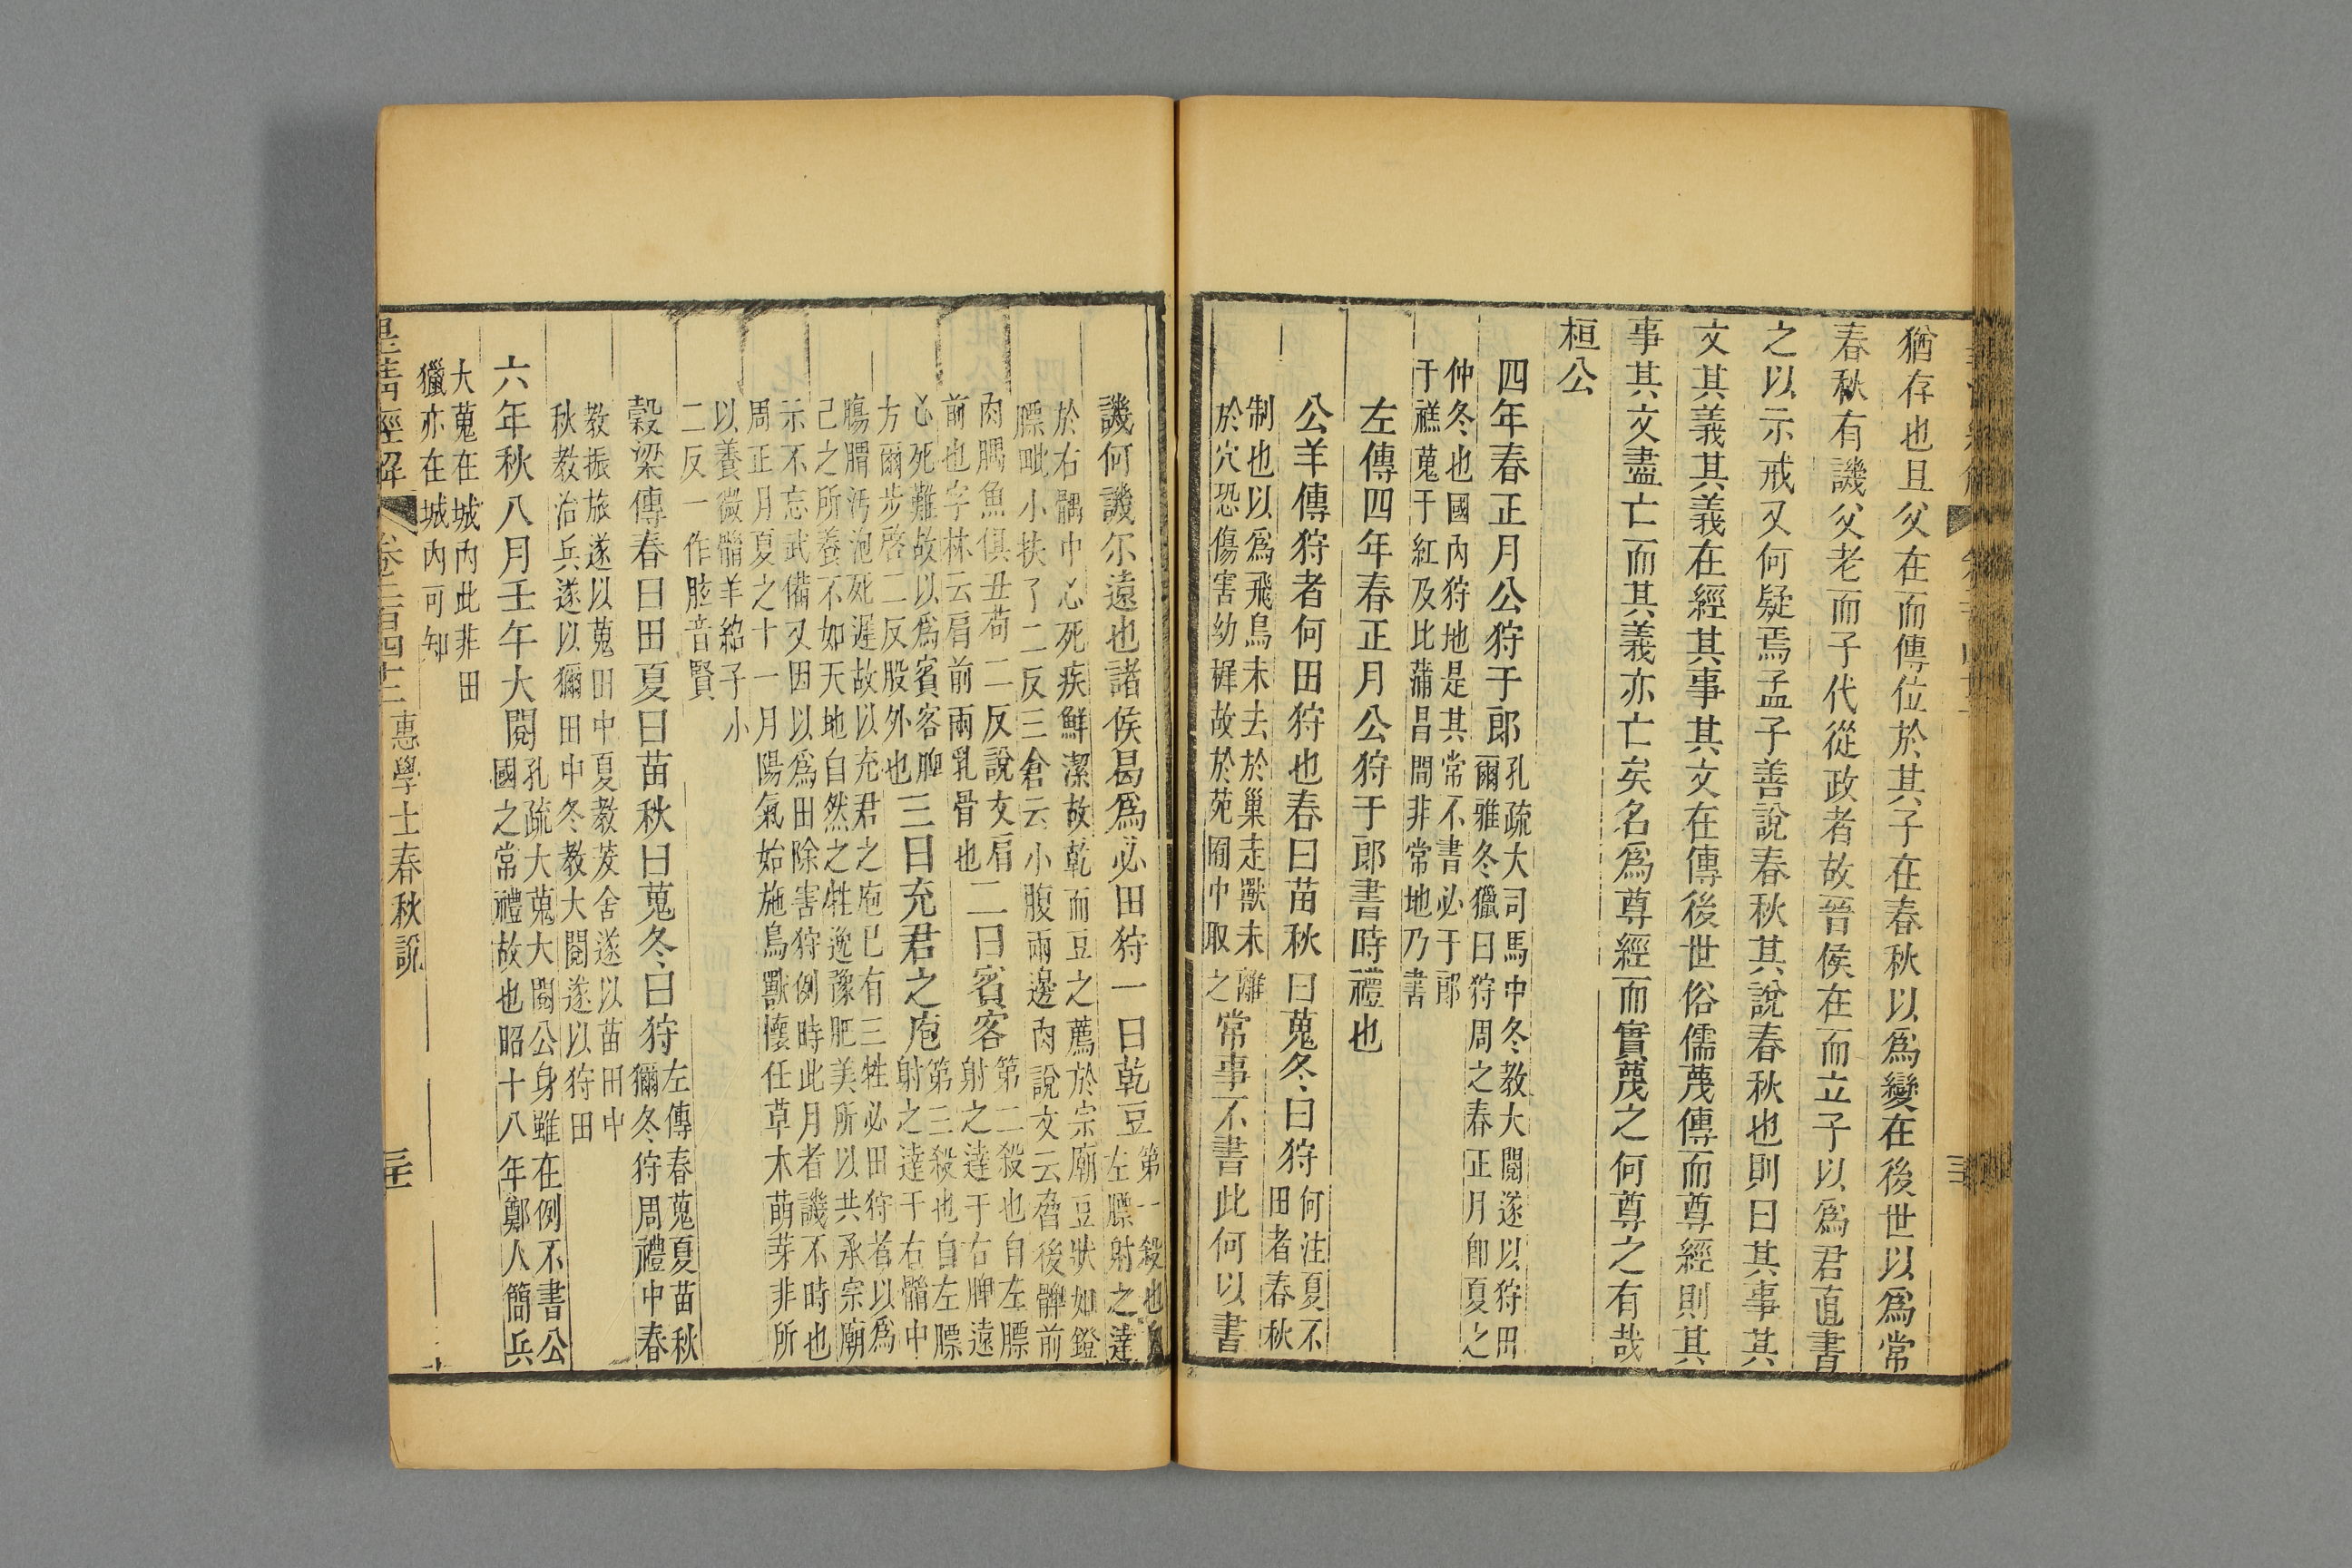 猶存也且父在而傳位於其子在春秋以爲變在後世以爲常
春秋有譏父老而子代從政者故晉侯在而立子以爲君直書
之以示戒又何疑焉孟子善說春秋其說春秋也則曰其事其
文其義其義在經其事其文在傳後世俗儒蔑傳而尊經則其
事其文盡亡而其義亦亡矣名爲尊經而實蔑之何尊之有哉
桓公
四年春正月公狩于郎
孔疏大司馬中冬教大閱遂以狩田
爾雅冬獵曰狩周之春正月卽夏之
仲冬也國內狩地是其常不書必于郎
于禚蒐于紅及比蒲昌閒非常地乃書
左傳四年春正月公狩于郎書時禮也
公羊傳狩者何田狩也春曰苗秋曰蒐冬曰狩
何注夏不
田者春秋
制也以爲飛鳥未去於巢走獸未離
於穴恐傷害幼稺故於苑囿中取之
常事不書此何以書
譏何譏尓遠也諸侯曷爲必田狩一曰乾豆
第一殺也自
左膘射之達
於右髃中心死疾鮮潔故乾而豆之薦於宗廟豆狀如鐙
膘毗小扶了二反三倉云小腹兩邊肉說文云脅後髀前
肉髃魚俱丑苟二反說文肩
前也字林云肩前兩乳骨也
二曰賓客
第二殺也自左膘
射之達于右脾遠
心死難故以爲賓客脾
方爾步啓二反股外也
三曰充君之庖
第三殺也自左膘
射之達于右䯚中
腸胃汚泡死遲故以充君之庖已有三牲必田狩者以爲
己之所養不如天地自然之牲逸豫肥美所以共承宗廟
示不忘武備又因以爲田除害狩例時此月者譏不時也
周正月夏之十一月陽氣始施鳥獸懷任草木萌芽非所
以養微䯚羊紹子小
二反一作胘音賢
穀梁傳春曰田夏曰苗秋曰蒐冬曰狩
左傳春蒐夏苗秋
獮冬狩周禮中春
教振旅遂以蒐田中夏教茇舍遂以苗田中
秋教治兵遂以獮田中冬教大閱遂以狩田
六年秋八月壬午大閱
孔疏大蒐大閱公身雖在例不書公
國之常禮故也昭十八年鄭人簡兵
大蒐在城內此非田
獵亦在城內可知
皇淸經解
卷二百四十三
惠學士春秋說